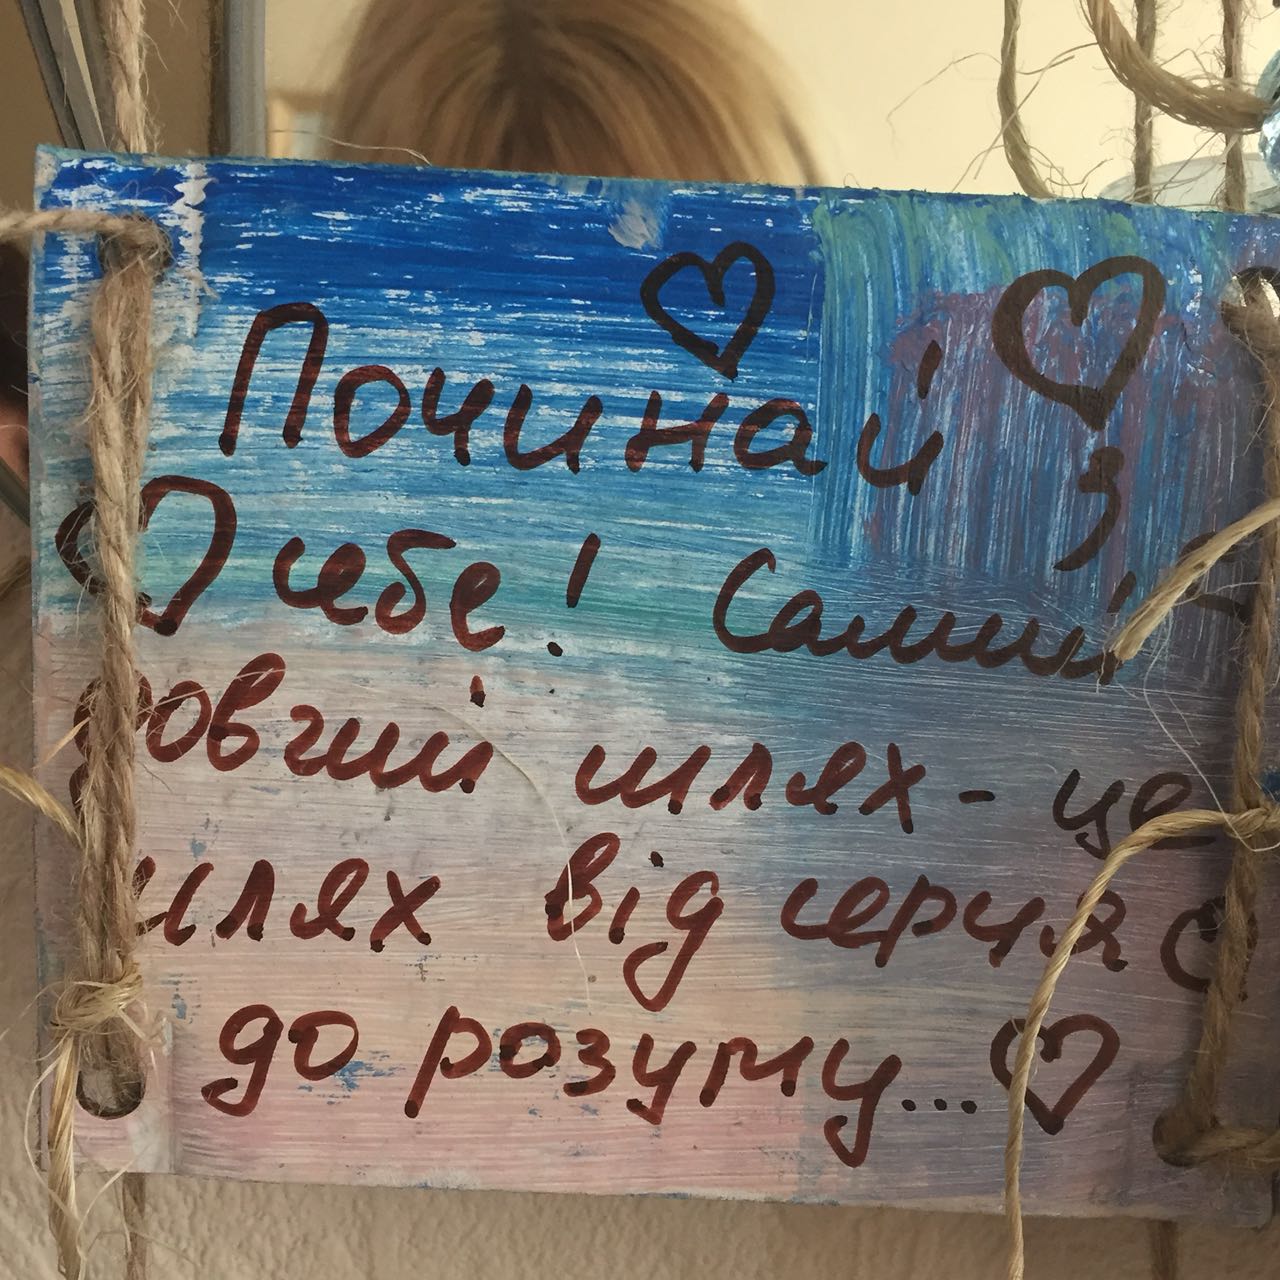 Починай з
себе! Самий
довгий шлях - це
шлях від серця
до розуму...